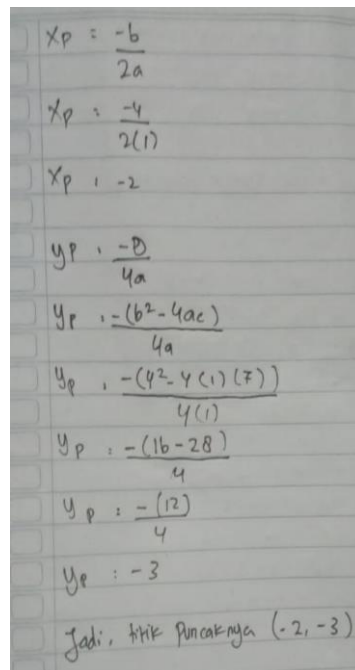 xp = -b
2a
xp = -4
2(1)
xp = -2
yp = -D
4a
yp = -(b² - 4ac)
4a
yp = -(4² - 4(1)(7))
4(1)
yp = -(16 - 28)
4
yp = -(12)
4
yp = -3
Jadi, titik puncaknya (-2, -3)